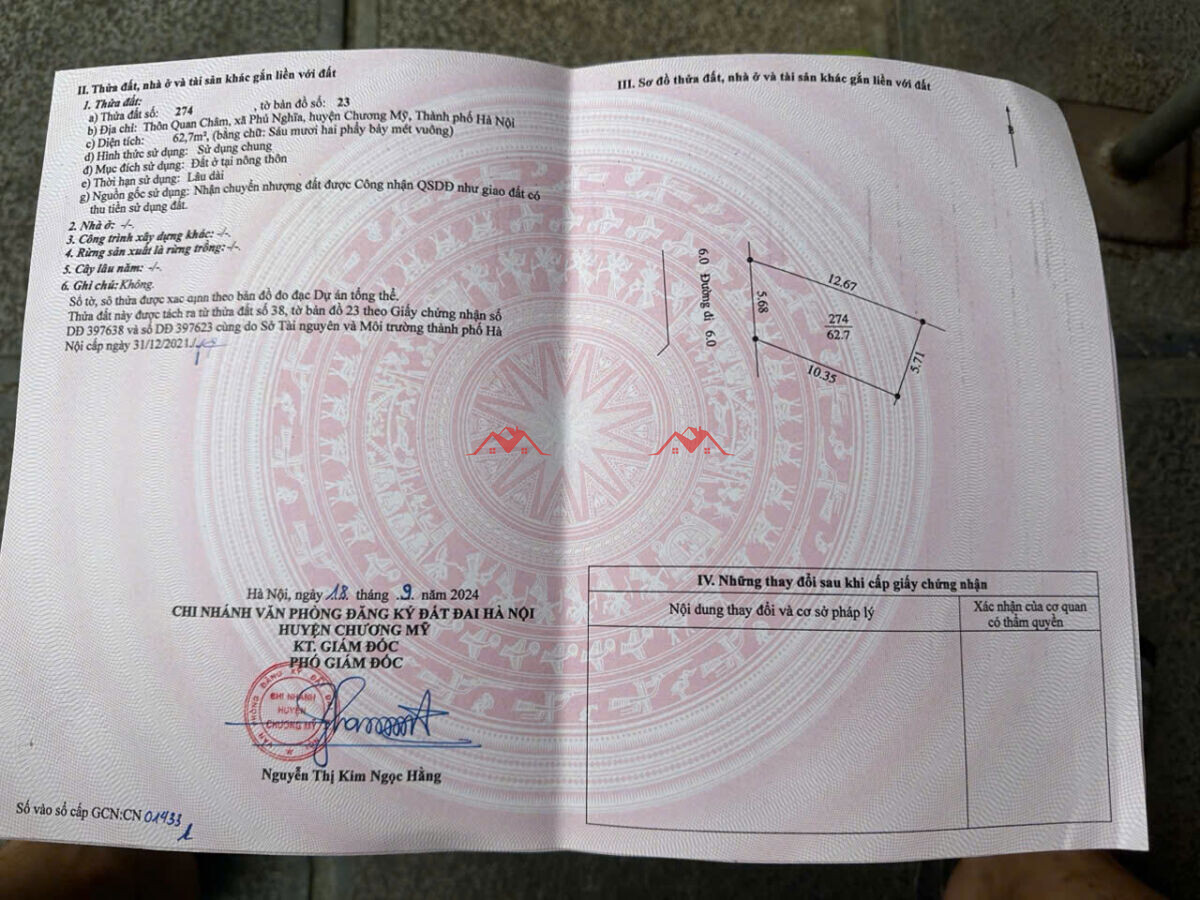 II. Thửa đất, nhà ở và tài sản khác gắn liền với đất
1. Thửa đất:
a) Thửa đất số: 274 , tờ bản đồ số: 23
b) Địa chỉ: Thôn Quan Châm, xã Phú Nghĩa, huyện Chương Mỹ, Thành phố Hà Nội
c) Diện tích: 62,7m², (bằng chữ: Sáu mươi hai phẩy bảy mét vuông)
d) Hình thức sử dụng: Sử dụng chung
đ) Mục đích sử dụng: Đất ở tại nông thôn
e) Thời hạn sử dụng: Lâu dài
g) Nguồn gốc sử dụng: Nhận chuyển nhượng đất được Công nhận QSDĐ như giao đất có
thu tiền sử dụng đất.
2. Nhà ở: -/-.
3. Công trình xây dựng khác: -/-.
4. Rừng sản xuất là rừng trồng: -/-.
5. Cây lâu năm: -/-.
6. Ghi chú: Không.
Số tờ, số thửa được xác định theo bản đồ đo đạc Dự án tổng thể.
Thửa đất này được tách ra từ thửa đất số 38, tờ bản đồ 23 theo Giấy chứng nhận số
DĐ 397638 và số DĐ 397623 cùng do Sở Tài nguyên và Môi trường thành phố Hà
Nội cấp ngày 31/12/2021./.
Hà Nội, ngày 18 tháng 9 năm 2024
CHI NHÁNH VĂN PHÒNG ĐĂNG KÝ ĐẤT ĐAI HÀ NỘI
HUYỆN CHƯƠNG MỸ
KT. GIÁM ĐỐC
PHÓ GIÁM ĐỐC
CHI NHÁNH
HUYỆN
CHƯƠNG MỸ
Nguyễn Thị Kim Ngọc Hằng
Số vào sổ cấp GCN:CN 01433
III. Sơ đồ thửa đất, nhà ở và tài sản khác gắn liền với đất
B
6.0 Đường đi 6.0
5.68
12.67
274
62.7
5.71
10.35
IV. Những thay đổi sau khi cấp giấy chứng nhận
Nội dung thay đổi và cơ sở pháp lý
Xác nhận của cơ quan
có thẩm quyền